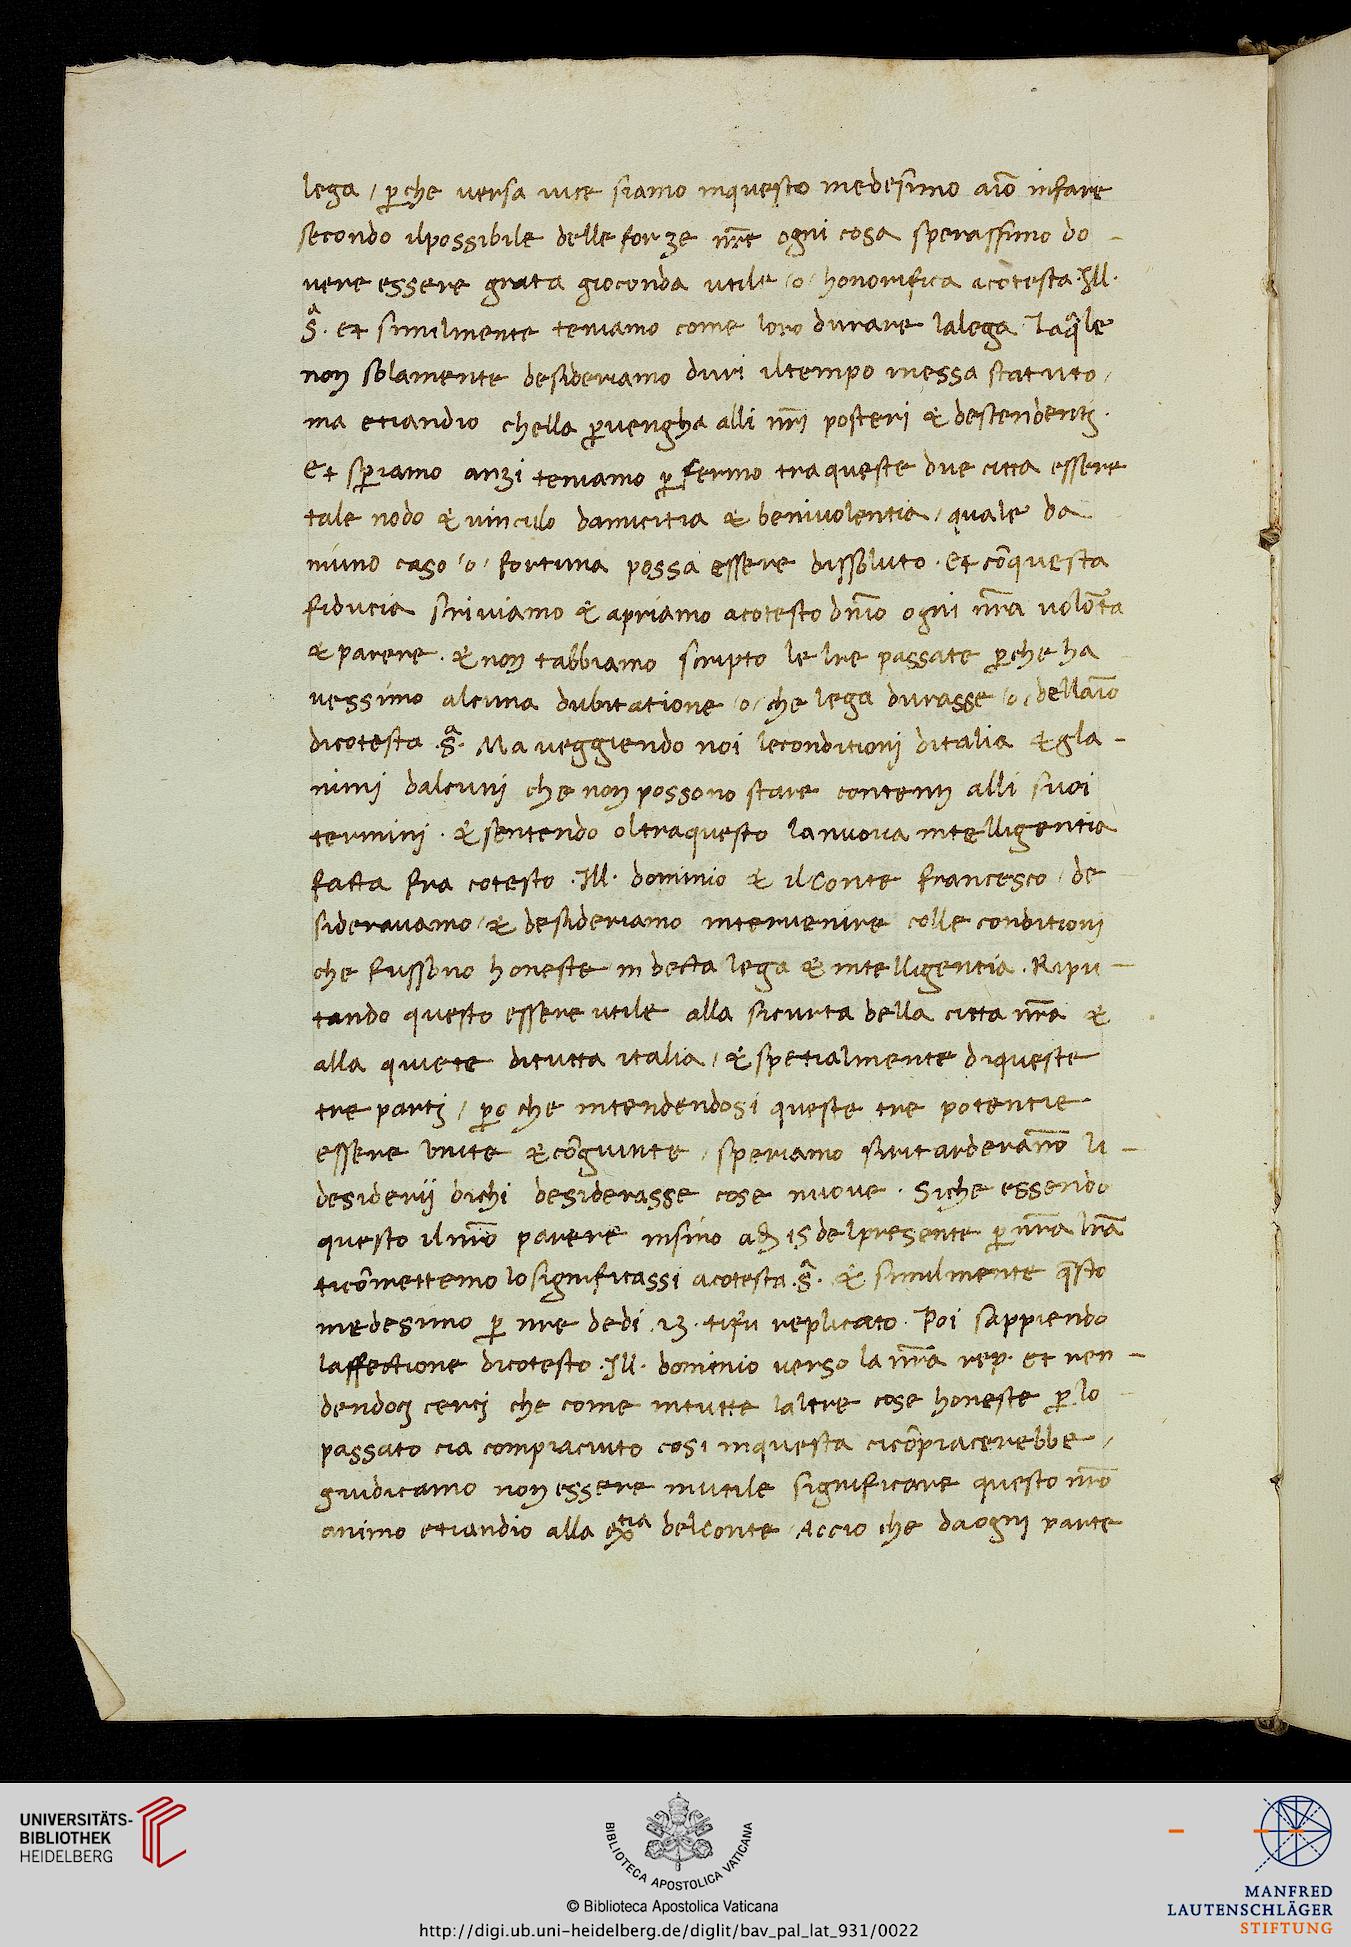 lega / ꝑche versa vice siamo inquesto medesimo aīo infare
secondo ilpossibile delle forze nr̄e ogni cosa sperassimo do-
vere essere grata gioconda utile /o/ honorifica acotesta .Ill.
.S.ª Et similmente teniamo come loro durare lalega laq̄le
non solamente desideriamo duri iltempo inessa statuto /
ma etiandio chella ꝑvengha alli nr̄i posteri & descendentj.
Et sꝑiamo anzi teniamo ꝑ fermo tra queste due citta essere
tale nodo & vinculo damicitia & benivolentia / quale da
niuno caso /o/ fortuna possa essere dissoluto. Et cōquesta
fiducia scriviamo & apriamo acotesto dn̄io ogni nr̄a volōta
& parere. & non tabbiamo scripto le lr̄e passate ꝑche ha
vessimo alcuna dubitatione /o/ che lega durasse /o/ dellaīo
dicotesta .S.ª Ma veggiendo noi leconditionj ditalia & gla-
nimi dalcunj che non possono stare contentj alli suoi
terminj. & sentendo oltraquesto lanuova intelligentia
facta fra cotesto .Ill. dominio & ilConte francesco / de
sideravamo / & desideriamo intervenire colle conditionj
che fussono honeste in decta lega & intelligentia. Ripu-
tando questo essere utile alla sicurta della citta nr̄a &
alla quiete ditutta italia / & spetialmente diqueste
tre partj / ꝑo che intendendosi queste tre potentie
essere unite & cōgiunte / speriamo siritarderan̄o li-
desiderij dichi desiderasse cose nuove. Siche essendo
questo ilnr̄o parere insino adj 15 delpresente ꝑ nr̄a lr̄a
ticōmettemo losignificassi acotesta .S.ª & similmente q̄sto
medesimo ꝑ nr̄e dedi .23. tifu replicato. Poi sappiendo
laffectione dicotesto .Ill. dominio verso la nr̄a rep. et ren-
dendocj certj che come intutte laltre cose honeste ꝑ lo
passato cia compiaciuto cosi inquesta cicōpiacerebbe /
giudicamo non essere inutile significare questo nr̄o
animo etiandio alla exᵗⁱᵃ delConte / Accio che daogni parte
UNIVERSITÄTS-
BIBLIOTHEK
HEIDELBERG
BIBLIOTECA APOSTOLICA VATICANA
© Biblioteca Apostolica Vaticana
http://digi.ub.uni-heidelberg.de/diglit/bav_pal_lat_931/0022
MANFRED
LAUTENSCHLÄGER
STIFTUNG